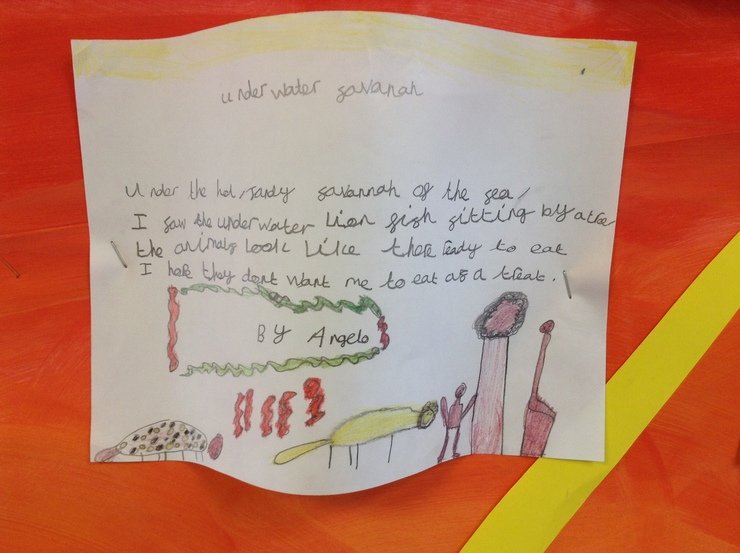 underwater savanah
Under the hot, sandy savannah of the sea,
I saw the underwater Lion fish sitting by a tree
the animals look Like there ready to eat
I hope they dont want me to eat as a treat.
By Angelo